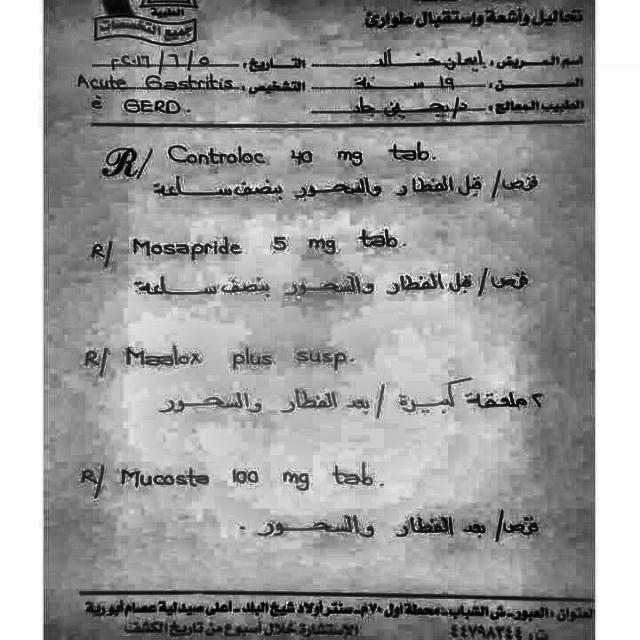 الطبية
جميع التخصصات
تحاليل وأشعة وإستقبال طوارئ
اسم المريض: إيمان خالد التاريخ: ٢٠١٦/٦/٥م
السن: ١٩ سنة التشخيص: Acute Gastritis
الطبيب المعالج: د/يحيى طه è GERD.
R/ Controloc 40 mg tab.
قرص/ قبل الفطار والسحور بنصف ساعة
R/ Mosapride 5 mg tab.
قرص/ قبل الفطار والسحور بنصف ساعة
R/ Maalox plus susp.
٢ ملعقة كبيرة / بعد الفطار والسحور
R/ Mucosta 100 mg tab.
قرص/ بعد الفطار والسحور .
العنوان: العبور-ش الشباب-محطة اول ٧٠م-سنتر أولاد شيخ البلد-أعلى صيدلية عصام أبورية
٤٤٧٩٨٢٤٤ الإستشارة خلال أسبوع من تاريخ الكشف